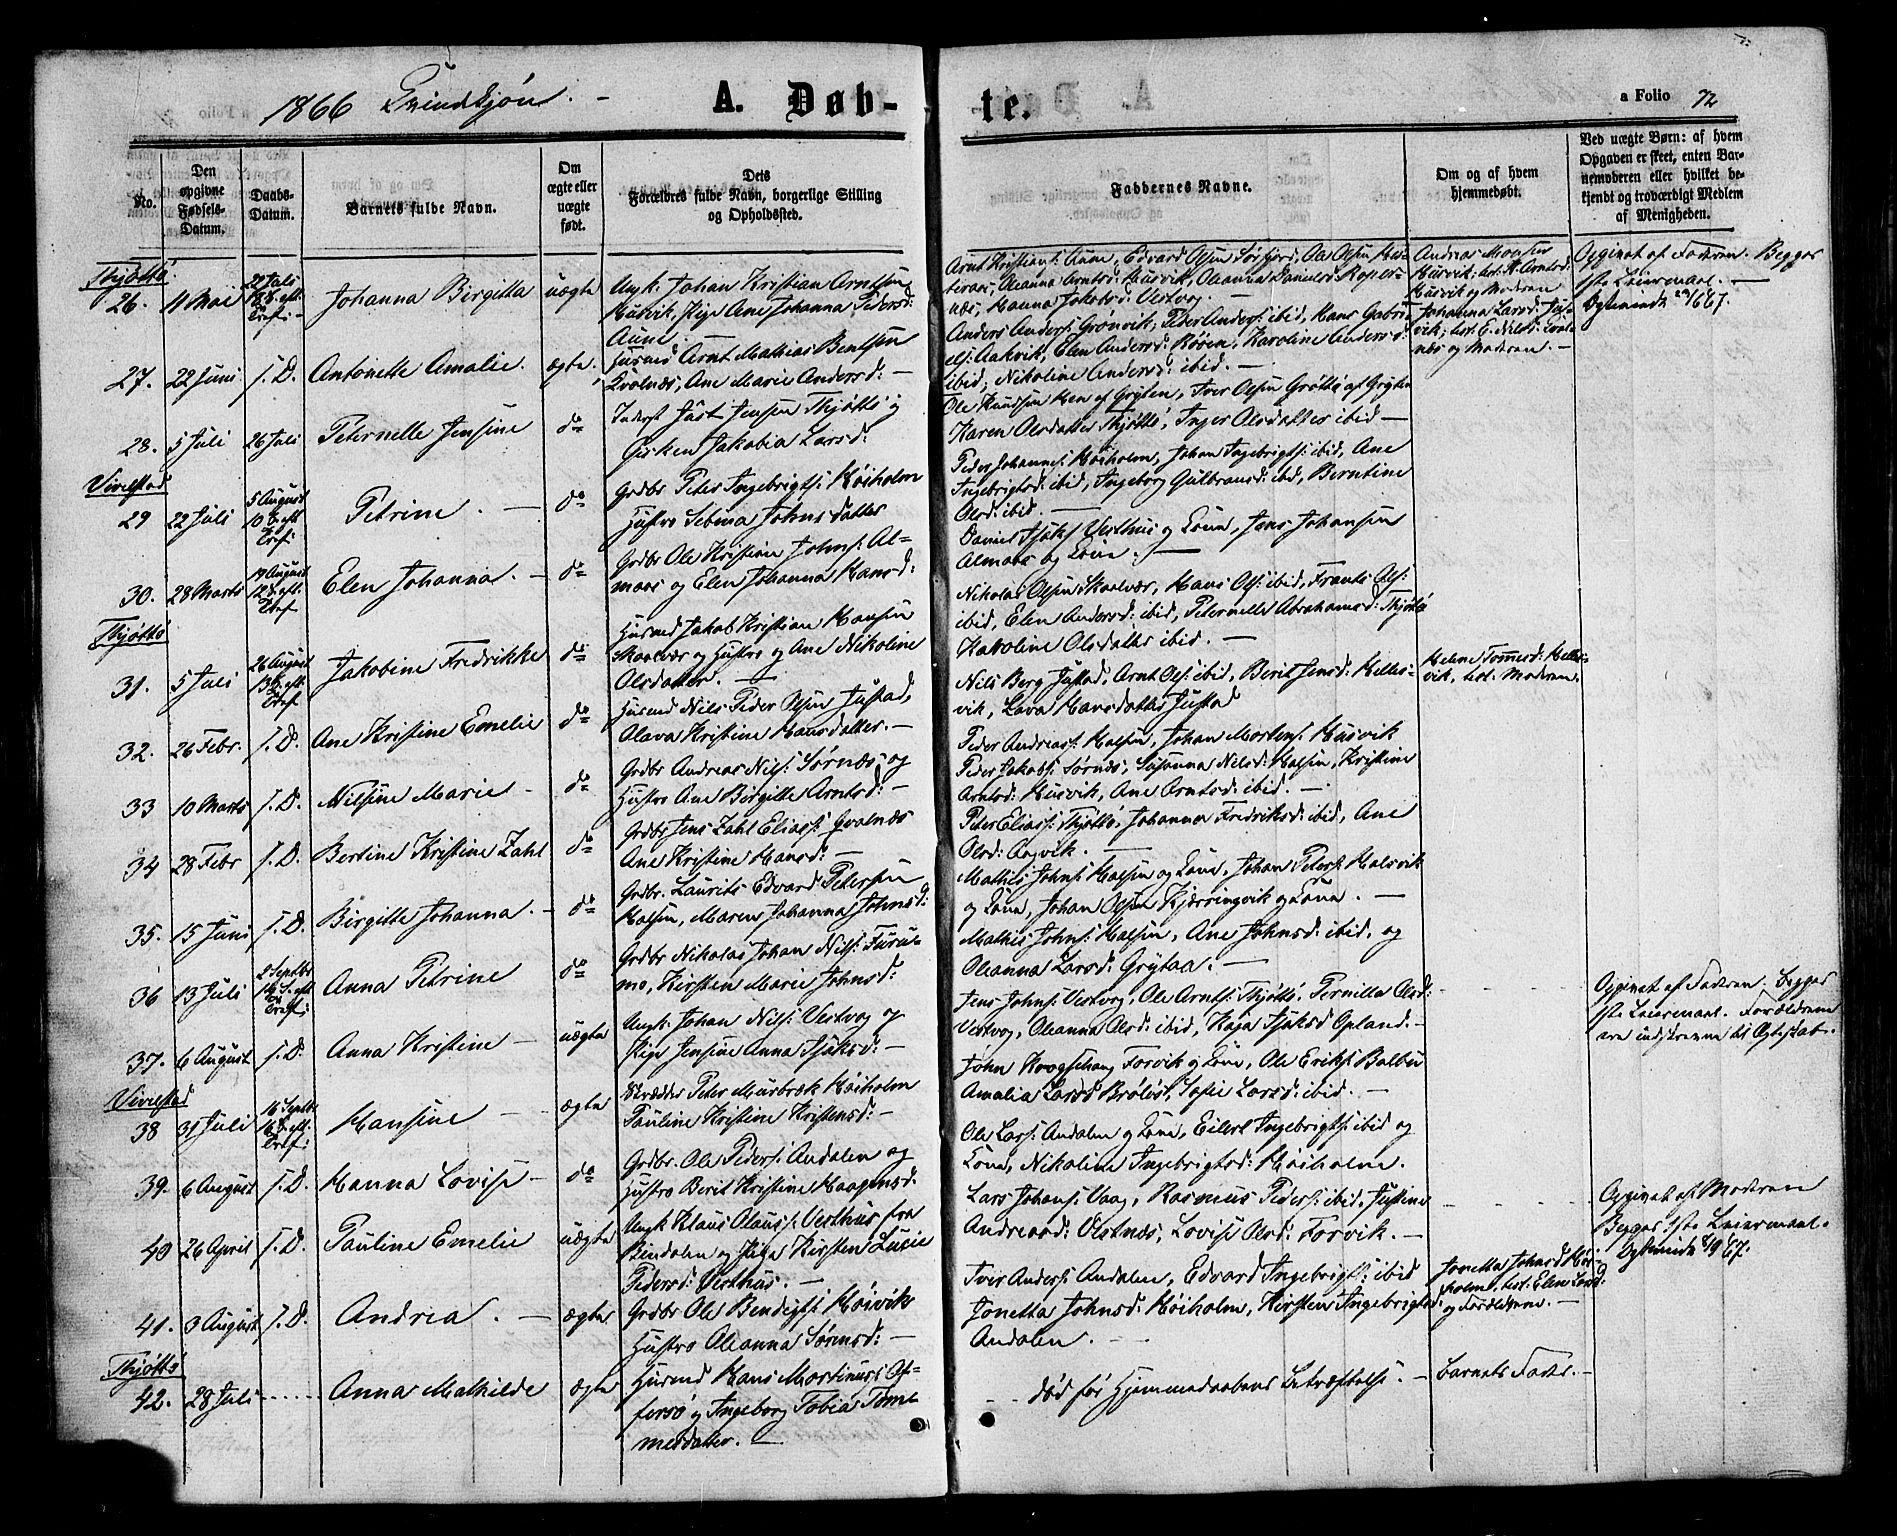 1866 Qvindkjøn. -
A. Døb-
te.
a Folio 72
No.
Den opgivne Fødsels-Datum.
Daabs-Datum.
Barnets fulde Navn.
Om ægte eller uægte født.
Dets Forældres fulde Navn, borgerlige Stilling og Opholdssted.
Faddernes Navne.
Om og af hvem hjemmedøbt.
Ved uægte Børn: af hvem Opgaven er skeet, enten Barnemoderen eller hvilket bekjendt og troværdigt Medlem af Menigheden.
Thjøttø
26. 11 Mai 22 Juli Johanna Birgitta uægte Ungk: Johan Kristian Arntsen
Husvik, Pige Ane Johanna Pedersd:
Aune
Arnt Kristians: Aune, Edvard Olsen
Hanna Jakobsd: Vestvog. -
Andreas
Husvik og Moderen
Opgivet af Faderen. Begges
1ste Leiermaal. -
27. 22 Juni S. D. Antonette Amalie. ægte. Husmd Arnt Mathias Bentsen
Qvalnæs, Ane Marie Andersd: -
Anders Anders: Grønvik, Peder Anders: ibid, Hans
Aakvik, Elen Andersd: Røøen, Karoline Andersd:
ibid, Nikoline Andersd: ibid. -
Johanna Larsd:
og Moderen. -
28. 5 Juli 26 Juli Peternelle Jensine do Inderst Just Jensen Thjøttø og
Gjerken Jakobia Larsd:
Ole Knudsen Moen af Grytten, Iver Olsen Grøtte af Grytten
Karen Olsdatter Thjøttø, Inger Olsdatter ibid -
Vivelstad
29 22 Juli 5 August Petrine. - do Grdbr Peter Ingebrigts: Høiholm
Hustro Sebina Johns datter
Peder Johannes: Høiholm, Johan Ingebrigts: ibid, Ane
Ingebrigtsd: ibid, Ingeborg Gulbransd: ibd, Berntine
Olsd: ibid. -
30. 28 Marts 19 August Elen Johanna. - do Grdbr Ole Kristian Johns: Al-
maas og Elen Johanna Hansd:
Daniel Isaks: Vesthus og Kone, Jens Johansen
Almaas og Kone. -
Thjøttø
31. 5 Juli 26 August Jakobine Fredrikke do Husmd Jakob Kristian Hansen
Skaalvær og Hustro og Ane Nikoline
Olsdatter. -
Nikolai Olsen Skaalvær, Hans Ols: ibid, Frants Ols:
ibid, Elen Andersd: ibid, Peternelle Abrahamsd: Thjøttø
Karoline Olsdatter ibid. -
32. 26 Febr. S. D. Ane Kristine Emelie do Husmd Nils Peder Olsen Justad,
Olava Kristine Hansdatter. -
Nils Berg Justad, Arnt Ols: ibid, Berit Jensd: Helles-
vik, Lava Hansdatter Justad
Helene Tommesd: Helles-
vik, bst. Moderen.
33 10 Marts S. D. Nilsine Marie - do Grdbr Andreas Nils: Sørnæs og
Hustro Ane Birgitte Arntsd: -
Peder Andreas: Halsen, Johan Mortens: Husvik
Peder Jakobs: Sørnæs, Susanna Nilsd: Halsen, Kristine
Arntsd: Husvik, Ane Arntsd: ibid. -
34 28 Febr S. D. Bertine Kristine Zahl do Grdbr Jens Zahl Elias: Qvalnæs
Ane Kristine Hansd: -
Peter Elias: Thjøttø, Johanna Fredriksd: ibid, Ane
Olsd: Aagvik. -
35. 15 Juni S. D. Birgitte Johanna. - do Grdbr. Laurits Edvard Petersen
Halsen, Maren Johanna Johnsd:
Mathis Johns: Halsen og Kone, Johan Peters: Halsvik
og Kone, Johan Olsen Kjærringvik og Kone. -
36 13 Juli 2 Septbr Anna Petrine do Grdbr Nikolai Johan Nils: Furu-
mo, Kirsten Marie Johnsd:
Mathis Johns: Halsen, Ane Johnsd: ibid, og
Oleanna Larsd: Grytaa. -
37. 6 August S. D. Anna Kristine - uægte Ungk: Johan Nils: Vestvog og
Pige Jensine Anna Isaksd: -
Jens Johns: Vestvog, Ole Arnts: Thjøttø, Pernilla Olsd:
Vestvog, Oleanna Olsd: ibid, Kaja Isaksd Opland. -
Opgivet af Faderen. Begges
1ste Leiermaal. Forældrene
ere indskrevne til Ægteskab.
Vivelstad
38 31 Juli 16 Septbr Hansine - ægte Skrædder Peter Musbræk Høiholm
Pauline Kristine Kristensd: -
John Skogsehaug Forvik og Kone, Ole Eriks: Balbu
Amalia Larsd Brøløs, Sofie Larsd: ibid. -
39. 6 August S. D. Hanna Lovise - do Grdbr. Ole Peders: Andalen og
Hustro Berit Kristine Haagensd.
Ole Lars: Andalen og Kone, Eilert Ingebrigts: ibid og
Kone, Nikoline Ingebrigtsd: Høiholm.
40 26 April S. D. Pauline Emelie uægte Ungk Klaus Olaus: Vesthus fra
Bindalen og Pige Kirsten Lucie
Pedersd: Vesthus. -
Lars Johans: Vaag, Rasmus Peders: ibid, Justine
Andreasd: Ulstnæs, Lovise Olsd: Forvik. -
Opgivet af Moderen
Begges 1ste Leiermaal.
41. 3 August S. D. Andrea. - ægte Grdbr Ole Bendigts: Høivik
Hustro Oleanna Sørensd: -
Iver Anders: Andalen, Edvard Ingebrigts: ibid
Jonetta Johnsd: Høiholm, Kirsten Ingebrigtsd:
Andalen. -
Jonetta Johnsd Høi-
holm, bst. Elen Larsd:
og Forældrene. -
Thjøttø
42. 28 Juli ...... Anna Mathilde ægte Husmd Hans Martinus: Of-
fersø og Ingeborg Tobia Tom-
mesdatter. -
død før Hjemmedaabens Bekræftelse. - Barnets Fader. -